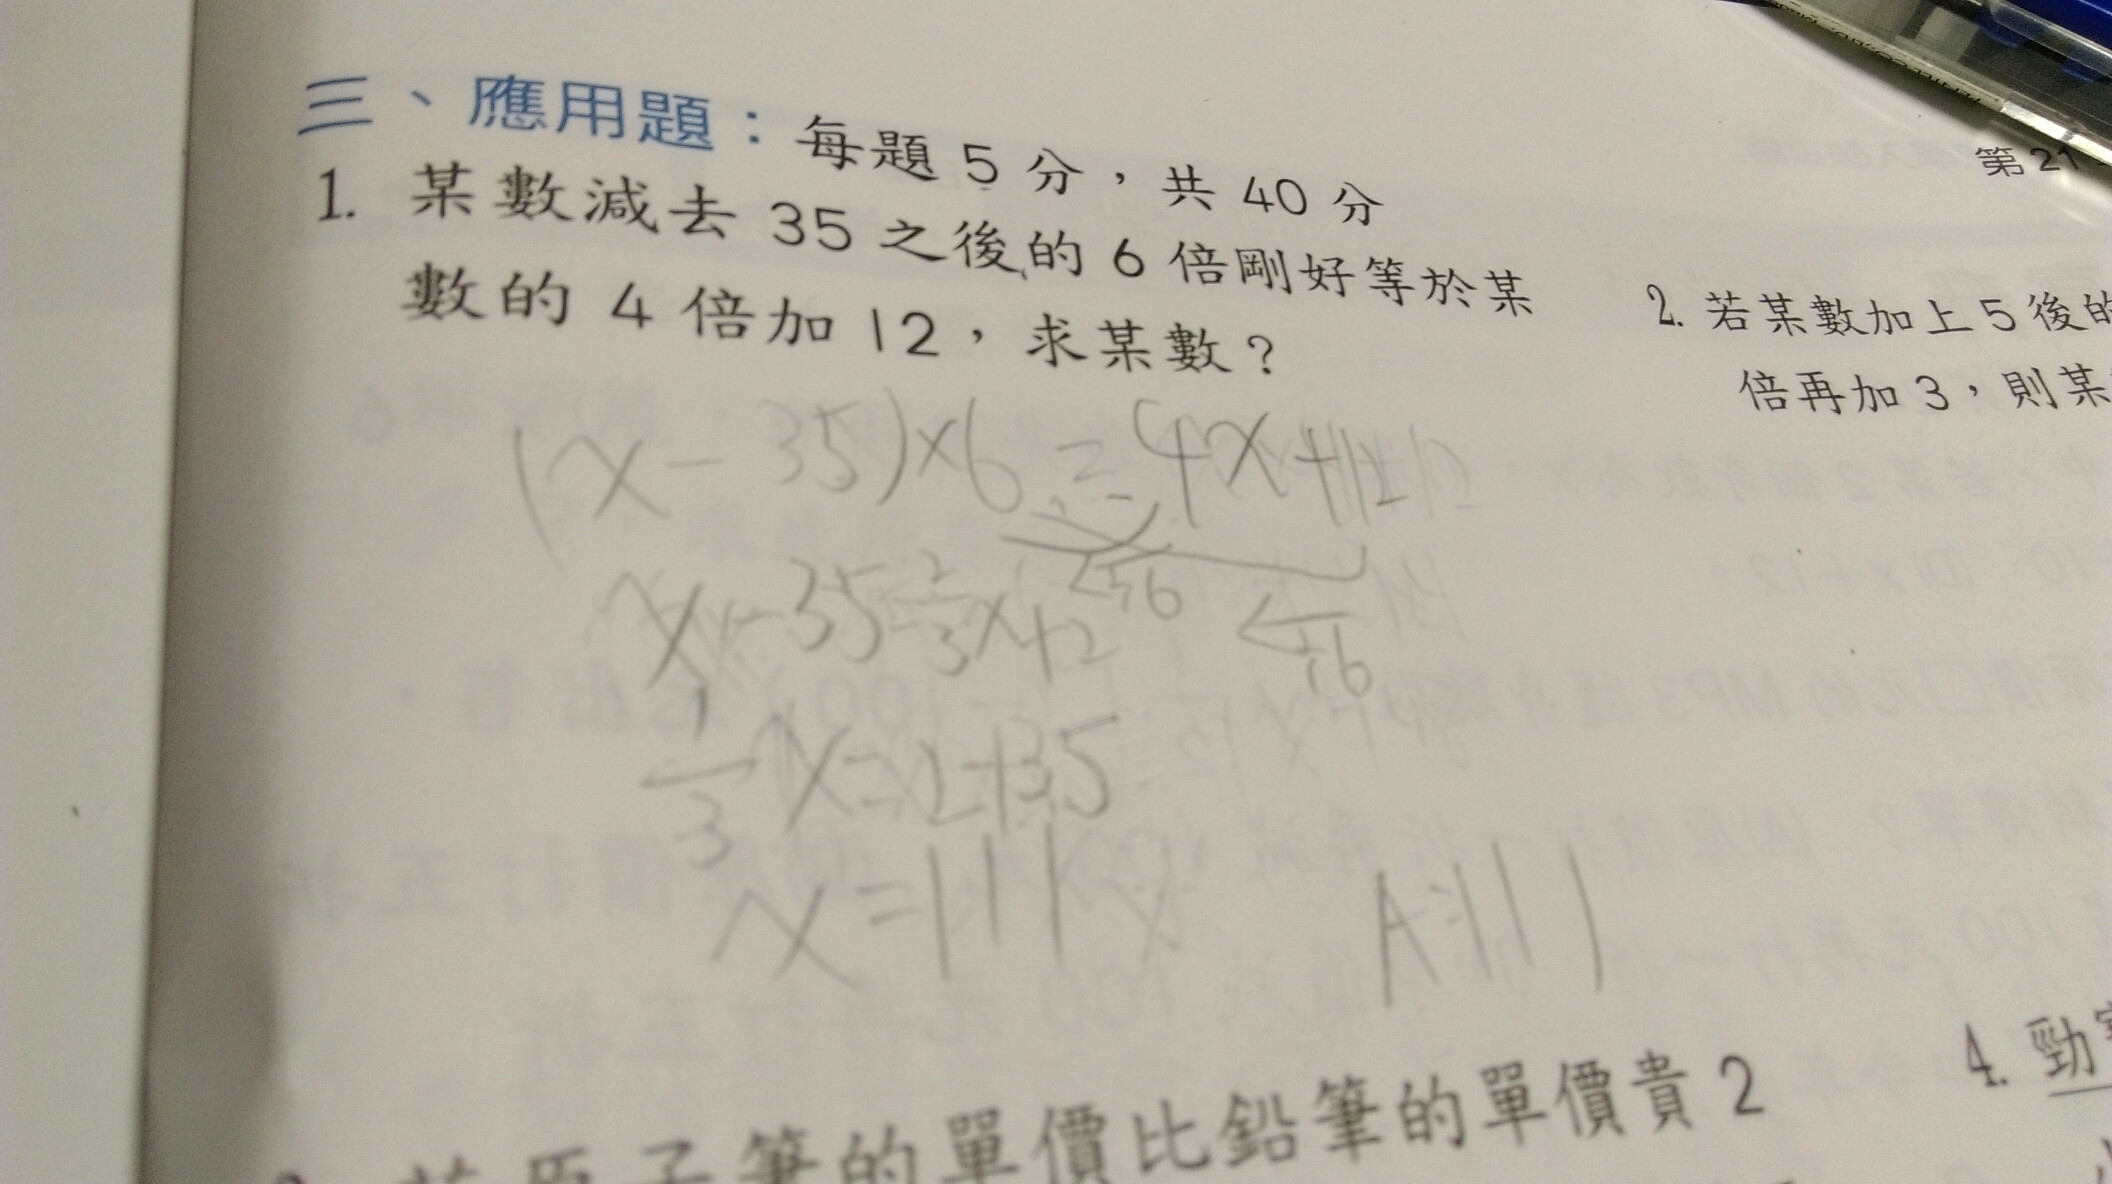 三、應用題：每題 5 分，共 40 分
1. 某數減去 35 之後的 6 倍剛好等於某
數的 4 倍加 12，求某數？
(x-35)×6=4x+12
÷6
÷6
x-35=2/3x+2
1/3x=2+35
x=111
A:111
第 21
2. 若某數加上 5 後的
倍再加 3，則某
原子筆的單價比鉛筆的單價貴 2
4. 勁